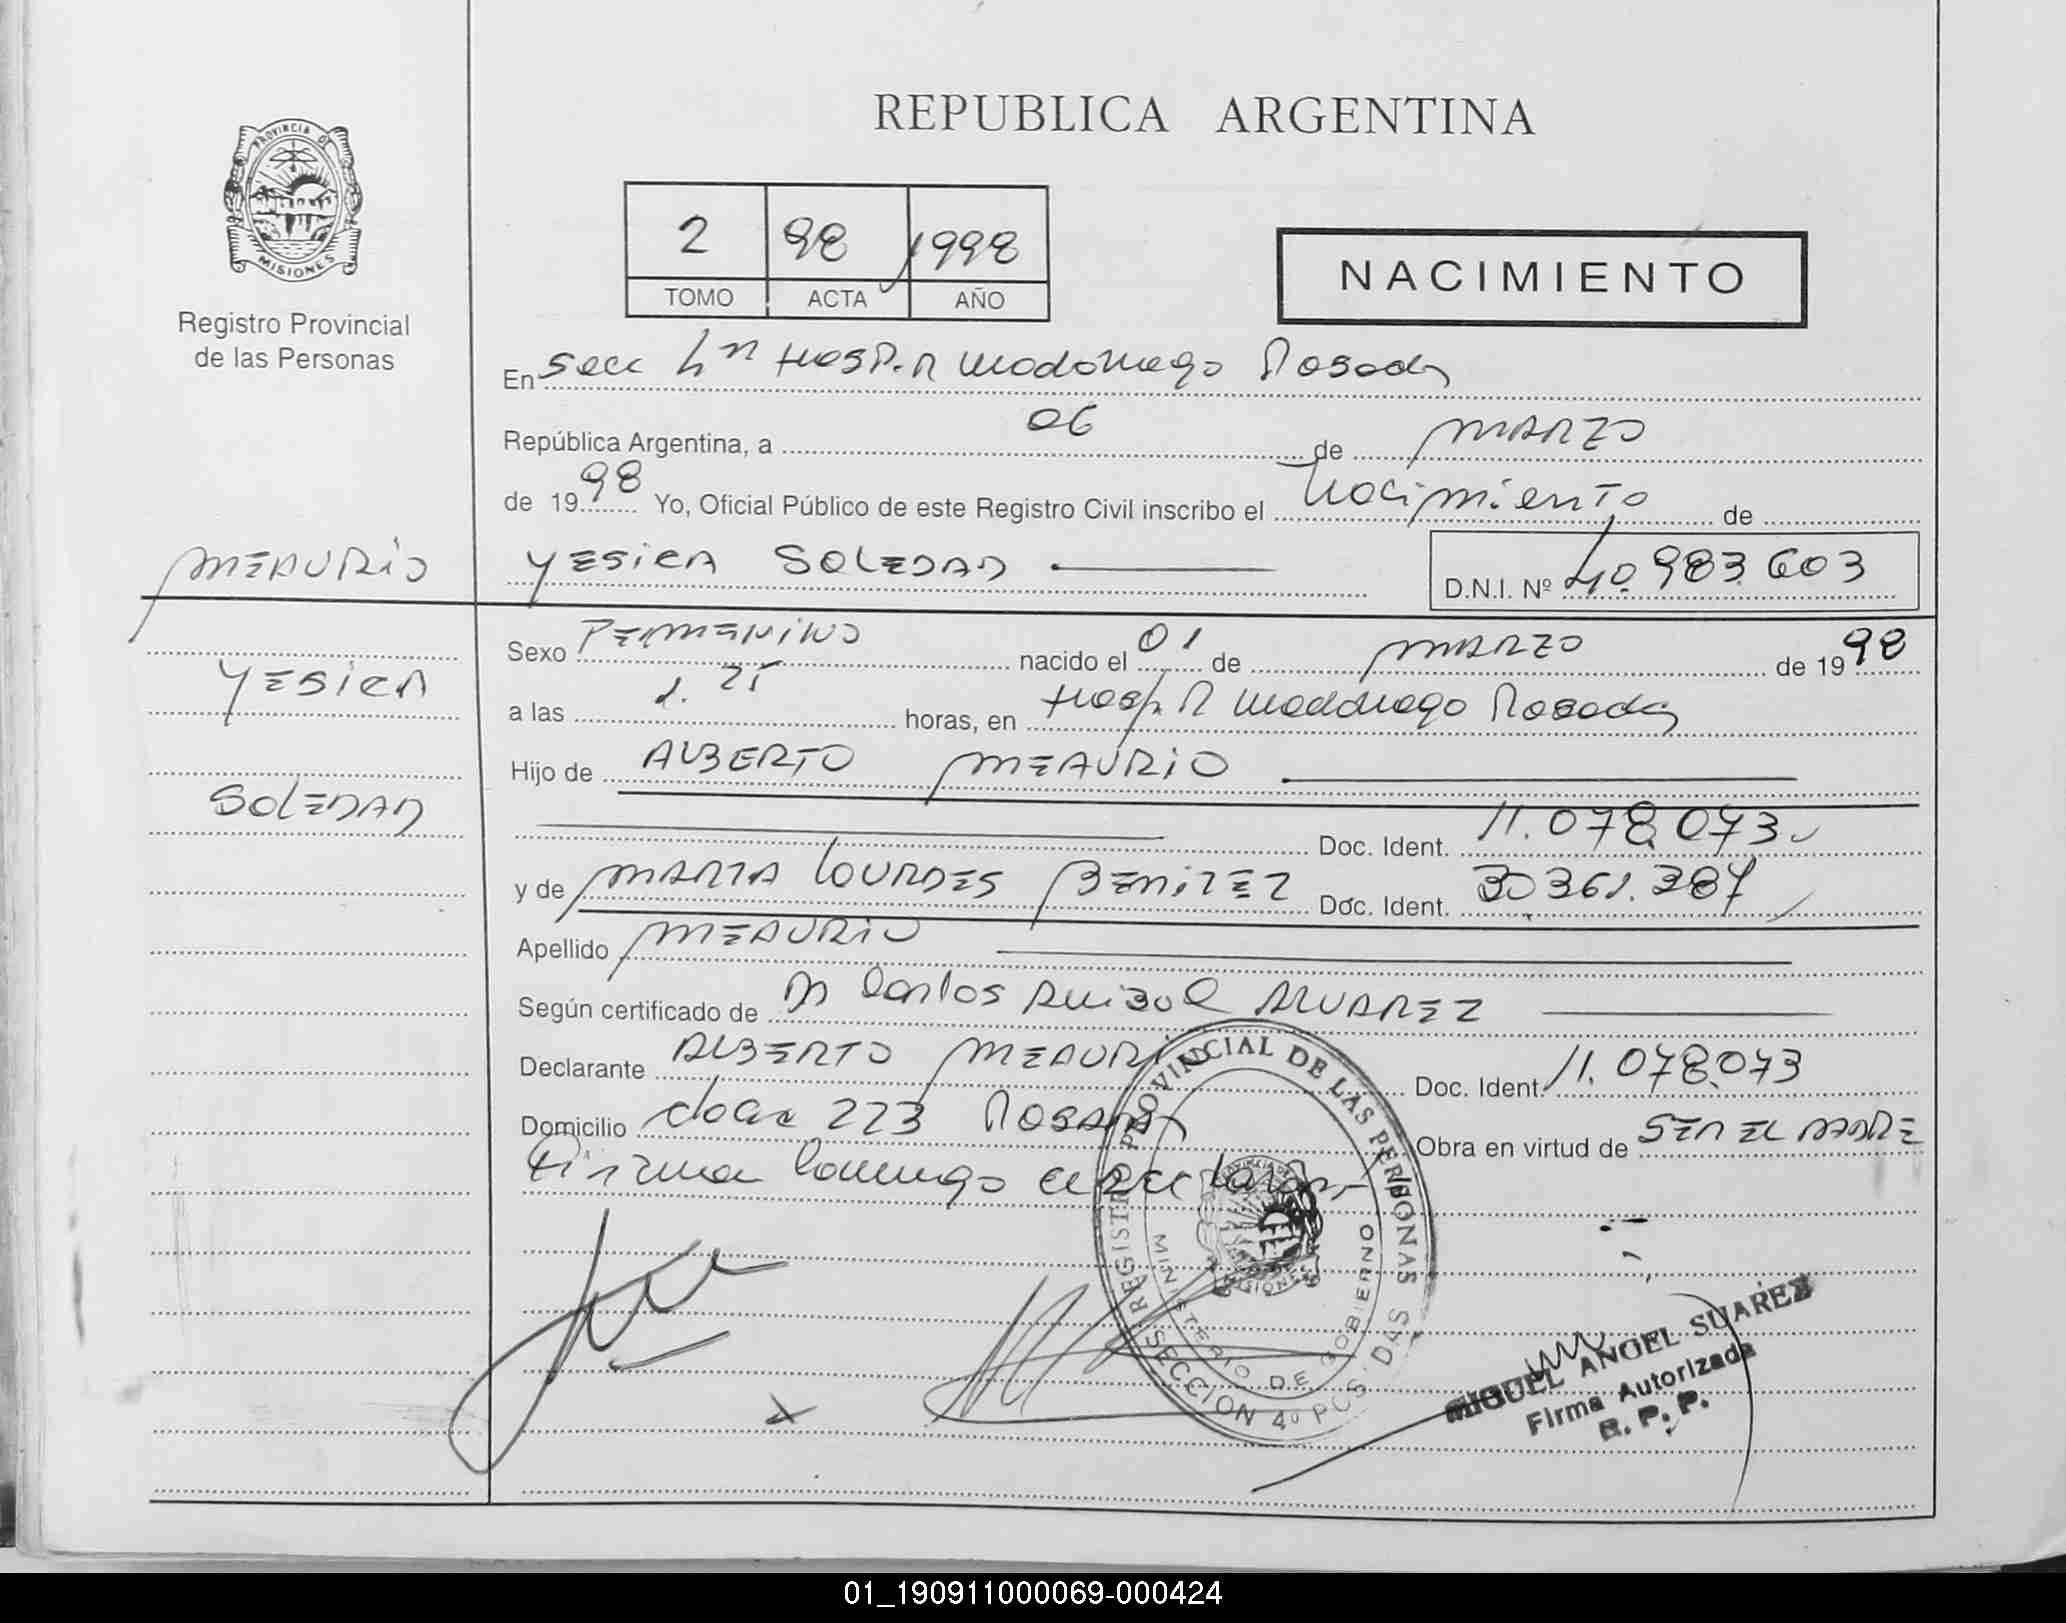 REPUBLICA ARGENTINA
PROVINCIA DE
MISIONES
Registro Provincial
de las Personas
2 98 1998
TOMO ACTA AÑO
NACIMIENTO
En Secc 4ta Hosp. R Madariaga Posadas
República Argentina, a 06 de MARZO
de 1998 Yo, Oficial Público de este Registro Civil inscribo el Nacimiento de
MEAURIO YESICA SOLEDAD D.N.I. Nº 40.983.603
Sexo FEMENINO nacido el 01 de MARZO de 1998
YESICA
a las 1.25 horas, en Hosp. R Madariaga Posadas
Hijo de ALBERTO MEAURIO
SOLEDAD
Doc. Ident. 11.078.073
y de MARIA LOURDES BENITEZ Doc. Ident. 30.361.387
Apellido MEAURIO
Según certificado de Dr Carlos Anibal ALVAREZ
Declarante ALBERTO MEAURIO Doc. Ident. 11.078.073
Domicilio 223 POSADAS Obra en virtud de SER EL PADRE
Firma conmigo
REGISTRO PROVINCIAL DE LAS PERSONAS
MINISTERIO DE GOBIERNO
SECCION 4º POSADAS
MIGUEL ANGEL SUAREZ
Firma Autorizada
R. P. P.
01_190911000069-000424